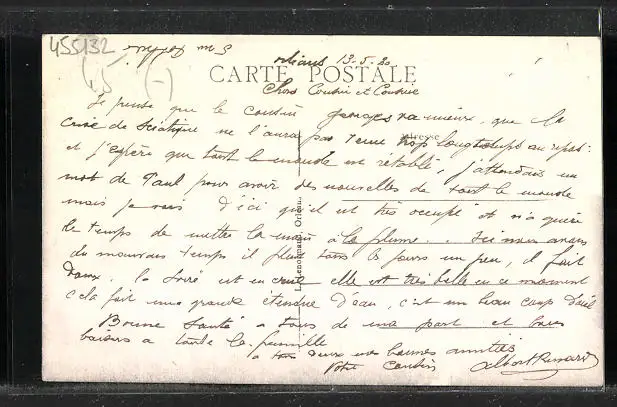 455132
Orléans 13-5-20
CARTE POSTALE
Chers Cousin et Cousine
Je pense que le cousin Georges va mieux, que la
crise de sciatique ne l'aura pas tenu trop longtemps au repos
et j'espère que tout le monde est rétabli, j'attendais un
mot de Paul pour avoir des nouvelles de tout le monde
mais je vois d'ici qu'il est très occupé et n'a guère
le temps de mettre la main à la plume. Ici nous avons
du mauvais temps il pleut tous les jours un peu, il fait
doux. la Loire est en crue elle est très belle en ce moment
cela fait une grande étendue d'eau, c'est un beau coup d'œil
Bonne Santé à tous de ma part et bons
baisers à toute la famille
à tous deux mes bonnes amitiés
Votre Cousin Albert
Adresse
Lenormand, Orléans